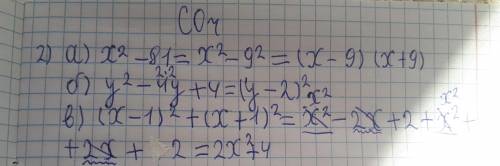 СОч
2) а) x² - 81 = x² - 9² = (x - 9) (x + 9)
б) y² - 4y + 4 = (y - 2)²
в) (x - 1)² + (x + 1)² = x² - 2x + 2 + x² +
+ 2x + 2 = 2x² + 4